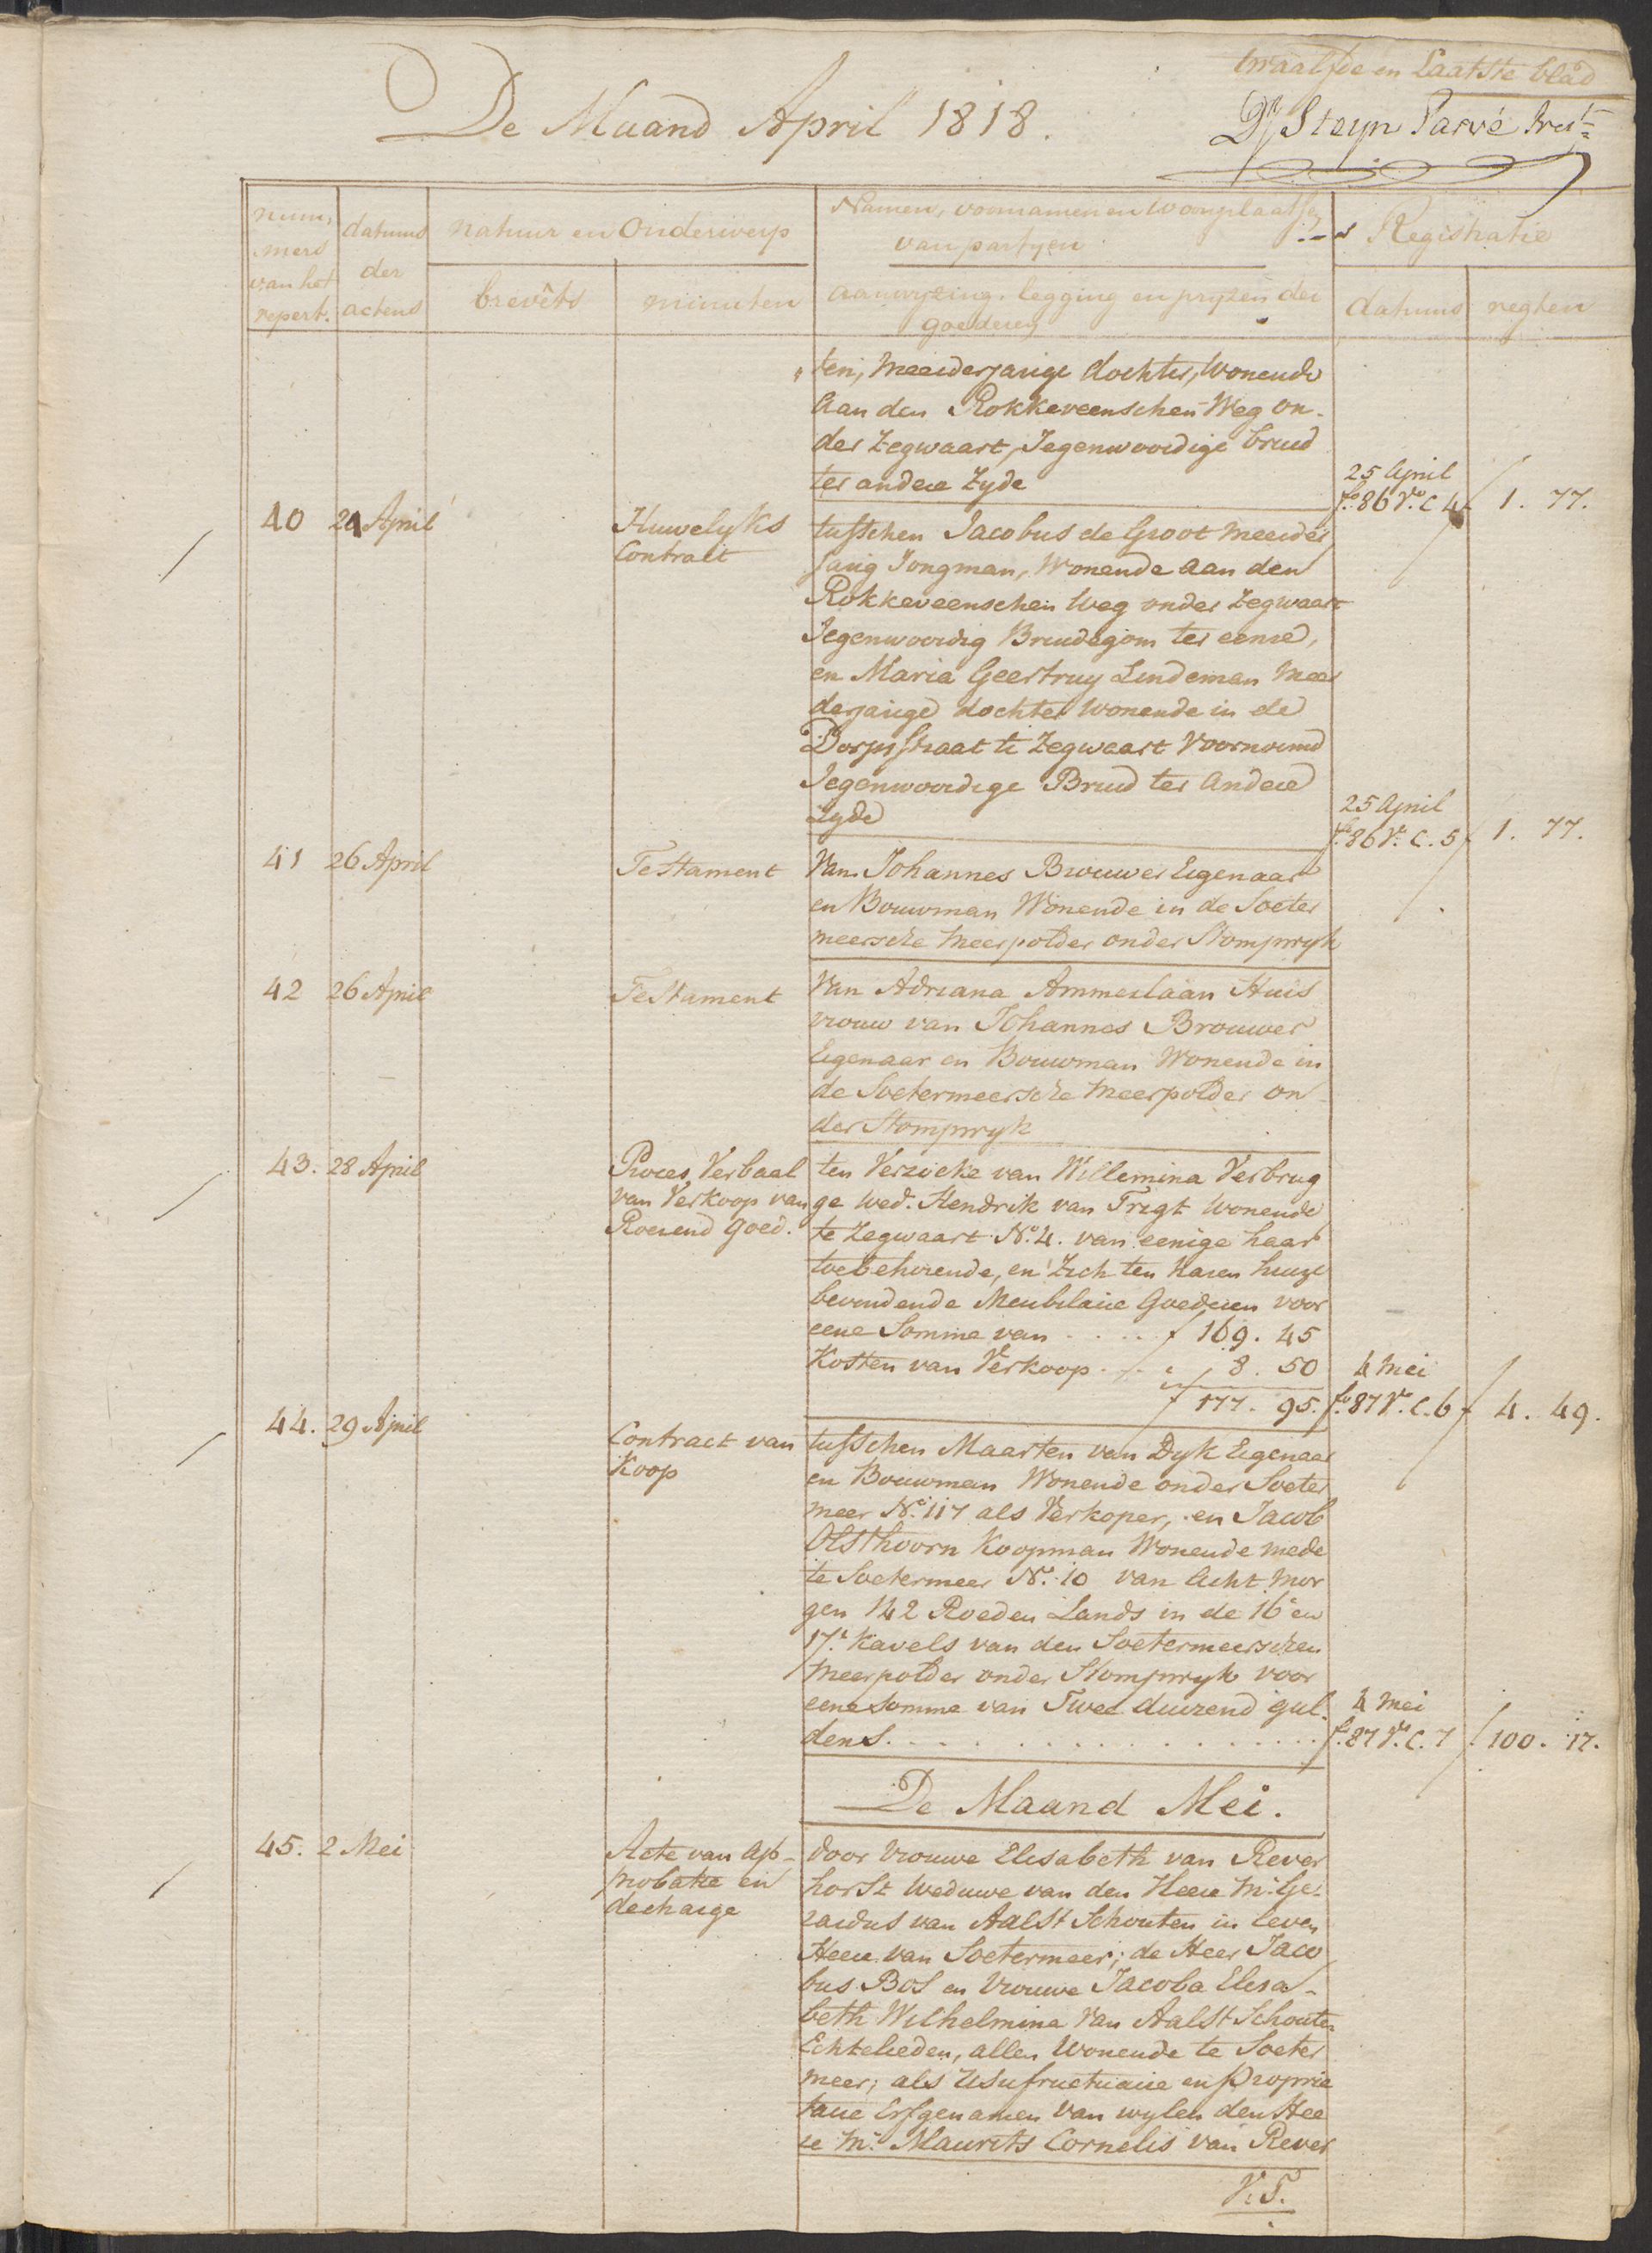 twaalfde en Laatste blad
De Maand April 1818.
D Steyn Parvé
num,
mers
van het
repert.
datums
der
actens
natuur en Onderwerp
brevêts
minuten
Namen, voornamen en Woonplaatsen
van partyen
aanwyzing. legging en pryzen der
goederen
Registratie
datums
regten
ten, meerderjarige dochter, Wonende
Aan den Rokkeveenschen Weg on-
der Zegwaart, Jegenwoordige bruid
ter andere Zyde
25 April
f.o 86 V.o C 4
1. 77.
40
April
Huwelyks
Contract
tusschen Jacobus de Groot meerder
jarig Jongman, Wonende Aan den
Rokkeveenschen Weg onder Zegwaart
Jegenwoordig Bruidegom ter eenre,
en Maria Geertruy Lindeman Meer
derjarige dochter Wonende in de
Dorpsstraat te Zegwaart Voornoemd
Jegenwoordige Bruid ter Andere
Zyde
25 April
f.o 86 V.o C. 5
1. 77.
41
26 April
Testament
Van Johannes Brouwer Eigenaar
en Bouwman Wonende in de Soeter
meersche Meerpolder onder Stompwyk
42
26 April
Testament
Van Adriana Ammerlaan Huis
vrouw van Johannes Brouwer
Eigenaar en Bouwman Wonende in
de Soetermeersche Meerpolder on
der Stompwyk
43.
28 April
Proces Verbaal
van Verkoop van
Roerend goed.
ten Verzoeke van Willemina Verbrug
ge Wed. Hendrik van Trigt Wonende
te Zegwaart N.o 4. van eenige haar
toebehorende, en Zich ten haren huize
bevindende Meubilaire Goederen voor
eene Somme van . . . . f 169. 45
Kosten van Verkoop . . . . 8. 50
f 177. 95.
4 Mei
f.o 87 V.o C. 6
4. 49.
44.
29 April
Contract van
Koop
tusschen Maarten van Dyk Eigenaar
en Bouwman Wonende onder Soeter
meer N.o 117 als Verkoper, en Jacob
Olsthoorn Koopman Wonende mede
te Soetermeer N.o 10 van Acht Mor
gen 142 Roeden Lands in de 16.e en
17.e Kavels van den Soetermeerschen
Meerpolder onder Stompwyk voor
eene Somme van Twee duizend gul.
dens . . . . . . . . . . . .
4 Mei
f.o 87 V.o C. 7
100. 17.
De Maand Mei.
45.
2 Mei
Acte van Ap-
probatie en
decharge
door Vrouwe Elisabeth van Rever
horst Weduwe van den Heere M.r Ge-
rardus van Aalst Schouten in leven
Heere van Soetermeer; de Heer Jaco
bus Bos en Vrouwe Jacoba Elisa-
beth Wilhelmina van Aalst Schouten
Echtelieden, allen Wonende te Soeter
meer; als Usufructuaire en proprie
taire Erfgenamen van wylen den Hee
re M.r Maurits Cornelis van Rever
V.S.